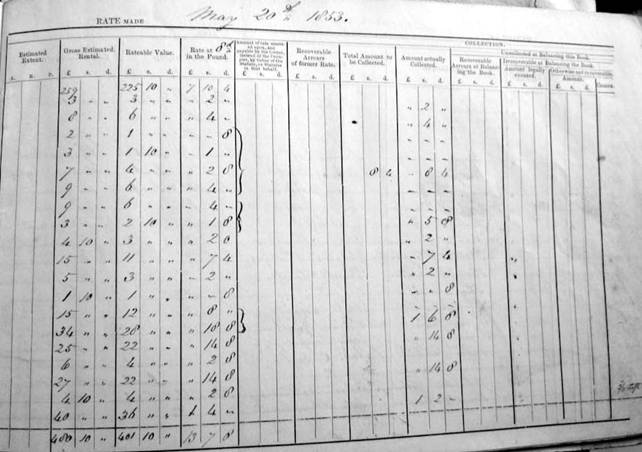 RATE MADE May 20th 1853.
COLLECTION.
Estimated Extent. Gross Estimated Rental. Rateable Value. Rate at 8d in the Pound. Recoverable Arrears of former Rate. Total Amount to be Collected. Amount actually Collected. Recoverable Arrears at Balancing the Book. Amount legally excused.
£ s. d. £ s. d. £ s. d. £ s. d. £ s. d. £ s. d.
259 225 10 " 7 10 4
3 " " 3 " " " 2 " " 2 "
8 " " 6 " " " 4 " " 4 "
2 " " 1 " " " " 8
3 " " 1 10 " " 1 "
7 " " 4 " " " 2 8 8 4 " 8 4
9 " " 6 " " " 4 "
9 " " 6 " " " 4 "
3 " " 2 10 " " 1 8 " 5 8
4 10 " 3 " " " 2 0 " 2 "
15 " " 11 " " " 7 4 " 7 4
5 " " 3 " " " 2 " " 2 "
1 10 " 1 " " " " 8 " " 8
15 " " 12 " " " 8 "
34 " " 28 " " " 18 8 1 6 8
25 " " 22 " " " 14 8 " 14 8
6 " " 4 " " " 2 8
27 " " 22 " " " 14 8 " 14 8
4 10 " 4 " " " 2 8
40 " " 36 " " 1 4 " 1 2 "
480 10 " 401 10 " 13 7 8